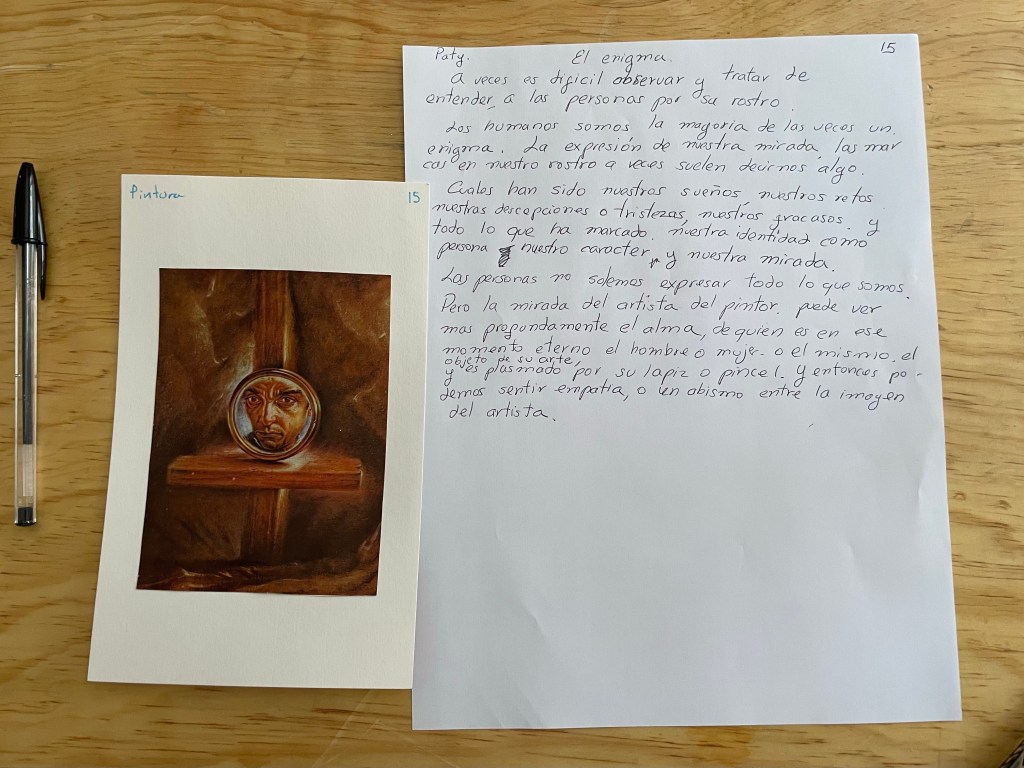 Pintura
15
Paty. El enigma. 15
A veces es dificil observar y tratar de
entender a las personas por su rostro.
Los humanos somos la mayoria de las veces un
enigma. La expresión de nuestra mirada, las mar
cas en nuestro rostro a veces suelen decirnos algo.
Cuales han sido nuestros sueños, nuestros retos
nuestras descepciones o tristezas, nuestros fracasos. y
todo lo que ha marcado. nuestra identidad como
persona nuestro caracter, y nuestra mirada.
Las personas no solemos expresar todo lo que somos.
Pero la mirada del artista del pintor. puede ver
mas profundamente el alma, de quien es en ese
momento eterno el hombre o mujer. o el mismo. el
objeto de su arte,
y es plasmado por su lapiz o pincel. y entonces po-
demos sentir empatia, o un abismo entre la imagen
del artista.